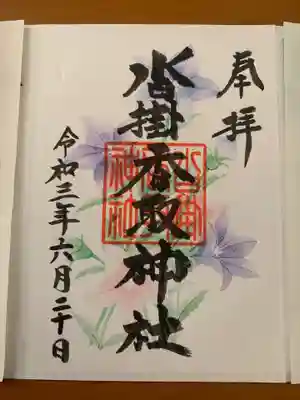 奉拝
沓掛香取神社
令和三年六月二十日